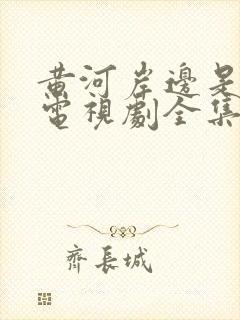 黄河岸邊是
電視劇全集
齊長城